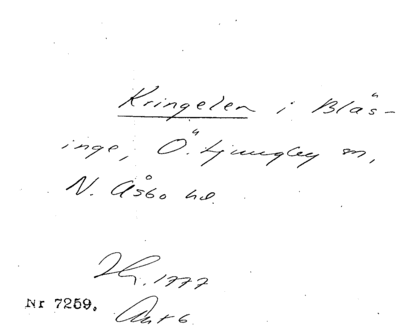 Kringelen i Blås-
inge, Ö. Ljungby sn,
N. Åsbo hd.
1777
Nr 7259.